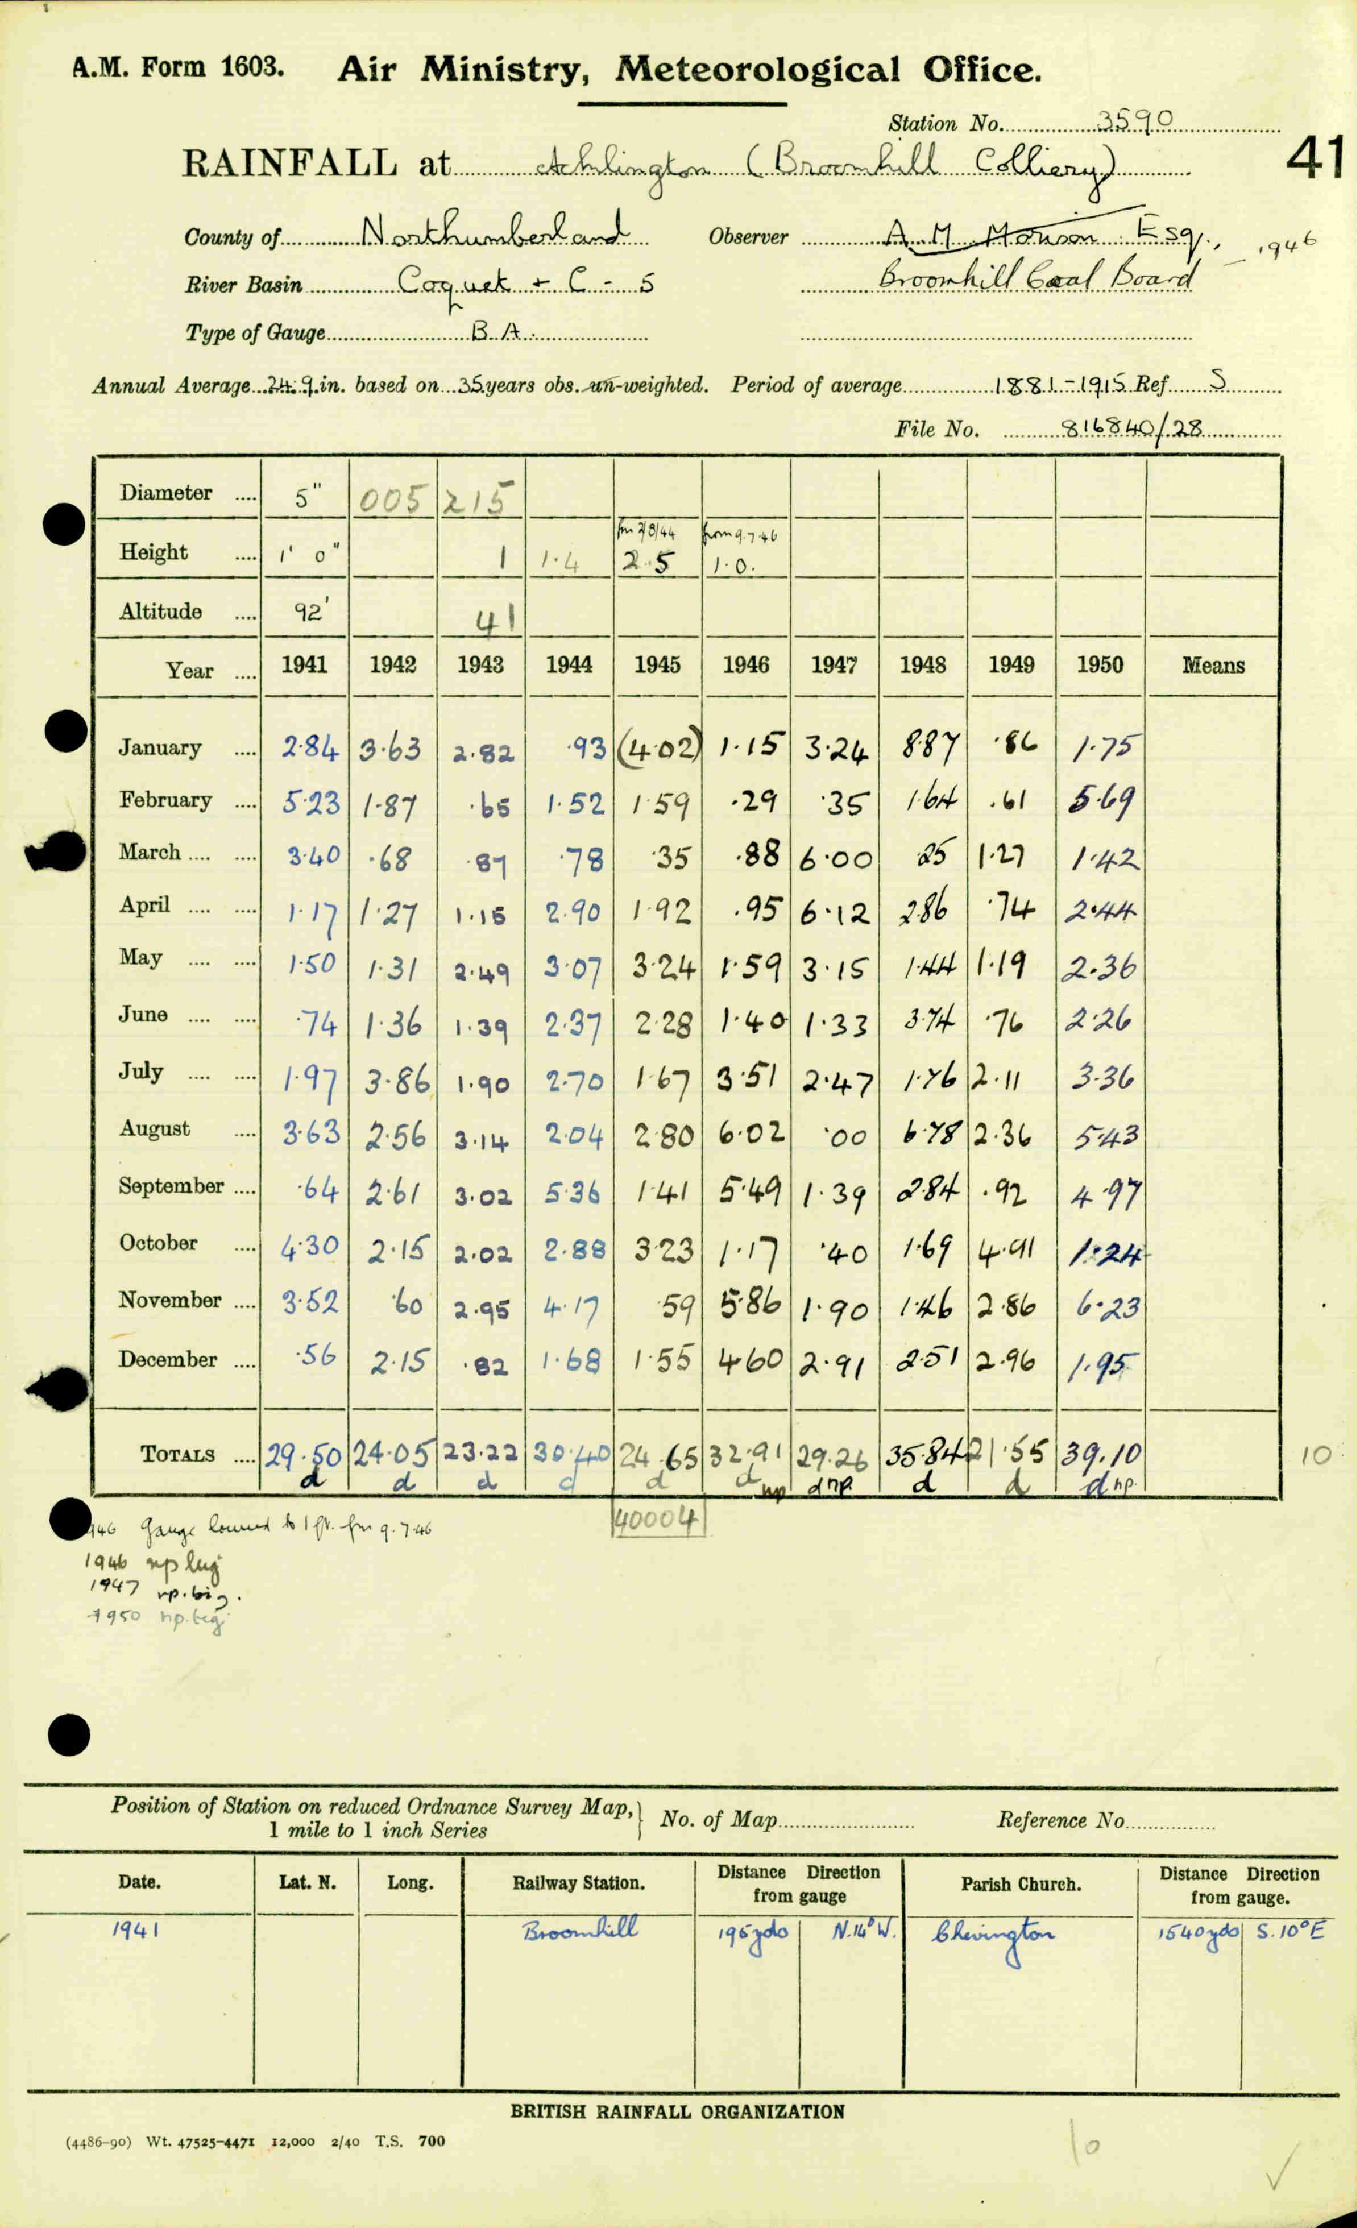 A.M. Form 1603. Air Ministry, Meteorological Office.
Station No. 3590
41
RAINFALL at Acklington (Broomhill Colliery)
County of Northumberland Observer A. M. Morison Esq., 1946
River Basin Coquet + C - 5 Broomhill Coal Board
Type of Gauge B A.
Annual Average 24.9 in. based on 35 years obs. un-weighted. Period of average 1881-1915 Ref S
File No. 816840/28
Diameter .... 5" 005 215
fm 2/8/44 from 9.7.46
Height .... 1' 0" 1 1.4 2.5 1.0.
Altitude .... 92' 41
Year .... 1941 1942 1943 1944 1945 1946 1947 1948 1949 1950 Means
January .... 2.84 3.63 2.82 .93 (4.02) 1.15 3.24 8.87 .86 1.75
February .... 5.23 1.87 .65 1.52 1.59 .29 .35 1.64 .61 5.69
March .... .... 3.40 .68 .87 .78 .35 .88 6.00 .25 1.27 1.42
April .... .... 1.17 1.27 1.15 2.90 1.92 .95 6.12 2.86 .74 2.44
May .... .... 1.50 1.31 2.49 3.07 3.24 1.59 3.15 1.44 1.19 2.36
June .... .... .74 1.36 1.39 2.37 2.28 1.40 1.33 3.74 .76 2.26
July .... .... 1.97 3.86 1.90 2.70 1.67 3.51 2.47 1.76 2.11 3.36
August .... 3.63 2.56 3.14 2.04 2.80 6.02 .00 6.78 2.36 5.43
September .... .64 2.61 3.02 5.36 1.41 5.49 1.39 2.84 .92 4.97
October .... 4.30 2.15 2.02 2.88 3.23 1.17 .40 1.69 4.91 1.24
November .... 3.52 .60 2.95 4.17 .59 5.86 1.90 1.46 2.86 6.23
December .... .56 2.15 .82 1.68 1.55 4.60 2.91 2.51 2.96 1.95
TOTALS .... 29.50 24.05 23.22 30.40 24.65 32.91 29.26 35.84 21.55 39.10 10
d d d d d d np d np. d d d np.
40004
946 Gauge lowered to 1 ft. fm 9.7.46
1946 np
1947 np.
1950 np.
Position of Station on reduced Ordnance Survey Map, } No. of Map Reference No.
1 mile to 1 inch Series
Date. Lat. N. Long. Railway Station. Distance Direction from gauge Parish Church. Distance Direction from gauge.
1941 Broomhill 195 yds N.14° W. Chevington 1540 yds S. 10° E
BRITISH RAINFALL ORGANIZATION
(4486-90) Wt. 47525-4471 12,000 2/40 T.S. 700
10